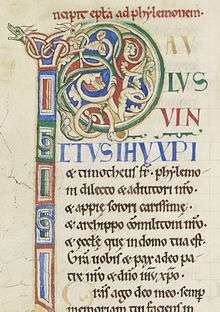 ncipit epła ad phylemonem.
P AU
LUS
VIN
CTVS IHV XPI
& timotheus fr̄. phylemo
ni dilecto & adiutori nr̄o.
& appie sorori carissime.
& archippo cōmilitoni nr̄o.
& eccłe que in domo tua est.
Gr̄a uobis & pax a deo pa
tre nr̄o & dn̄o ihu xp̄o.
ras ago deo meo. semp̄
memoriam tui faciens in